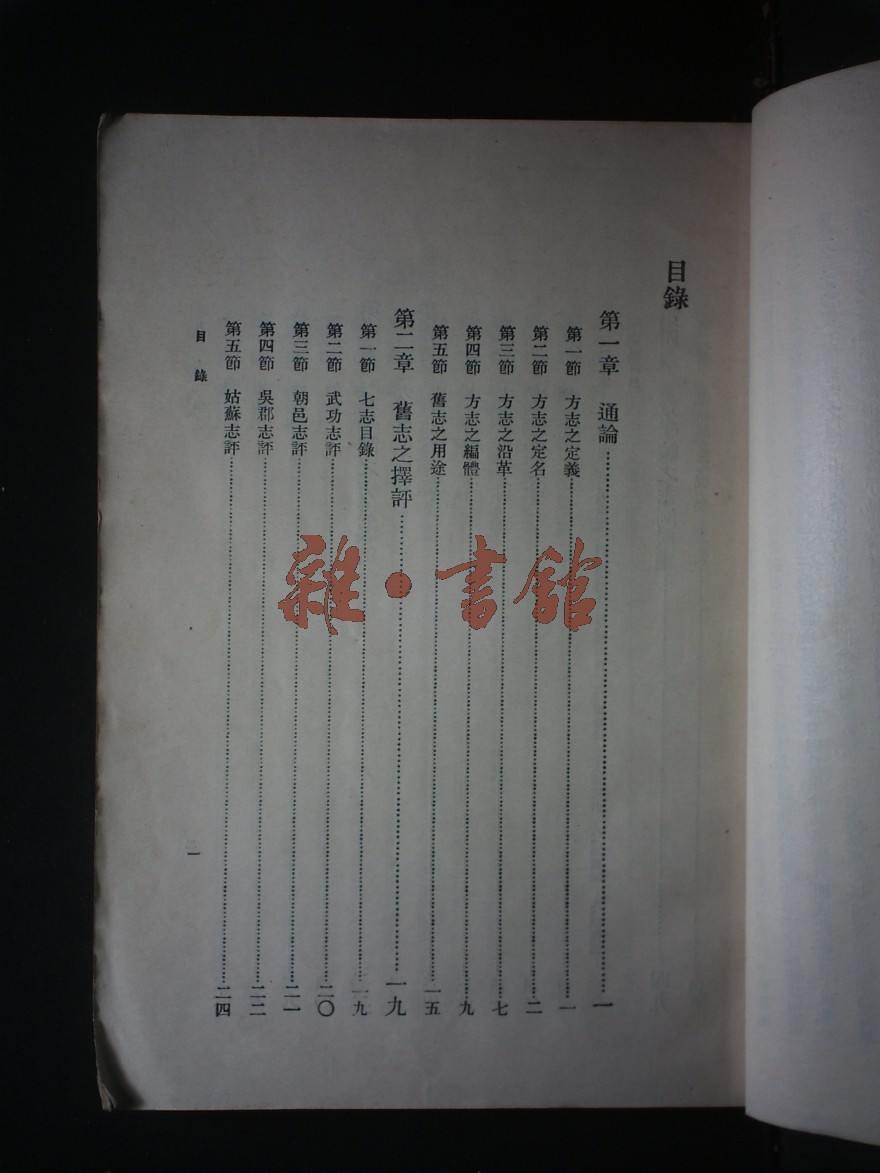 目錄
第一章 通論……一
第一節 方志之定義……一
第二節 方志之定名……二
第三節 方志之沿革……七
第四節 方志之編體……九
第五節 舊志之用途……一五
第二章 舊志之擇評……一九
第一節 七志目錄……一九
第二節 武功志評……二〇
第三節 朝邑志評……二一
第四節 吳郡志評……二二
第五節 姑蘇志評……二四
目 錄
一
雜·書館